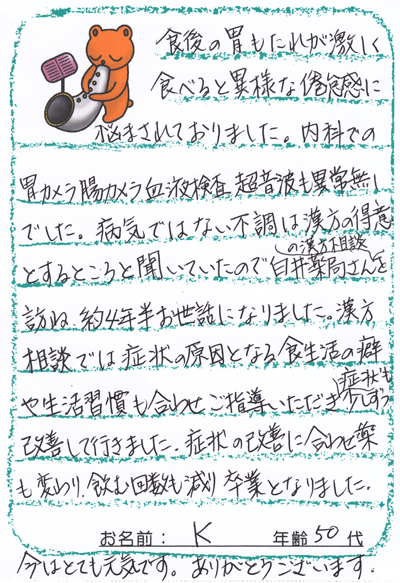 食後の胃もたれが激しく
食べると異様な倦怠感に
悩まされておりました。内科での
胃カメラ腸カメラ血液検査、超音波も異常無し
でした。病気ではない不調は漢方の得意
とするところと聞いていたので臼井薬局さんを
の漢方相談
訪ね、約4年半お世話になりました。漢方
相談では症状の原因となる食生活の癖
や生活習慣も合わせご指導いただき、症状も少しずつ
改善して行きました。症状の改善に合わせ薬
も変わり、飲む回数も減り卒業となりました。
お名前： K 年齢 50 代
今はとても元気です。ありがとうございます。